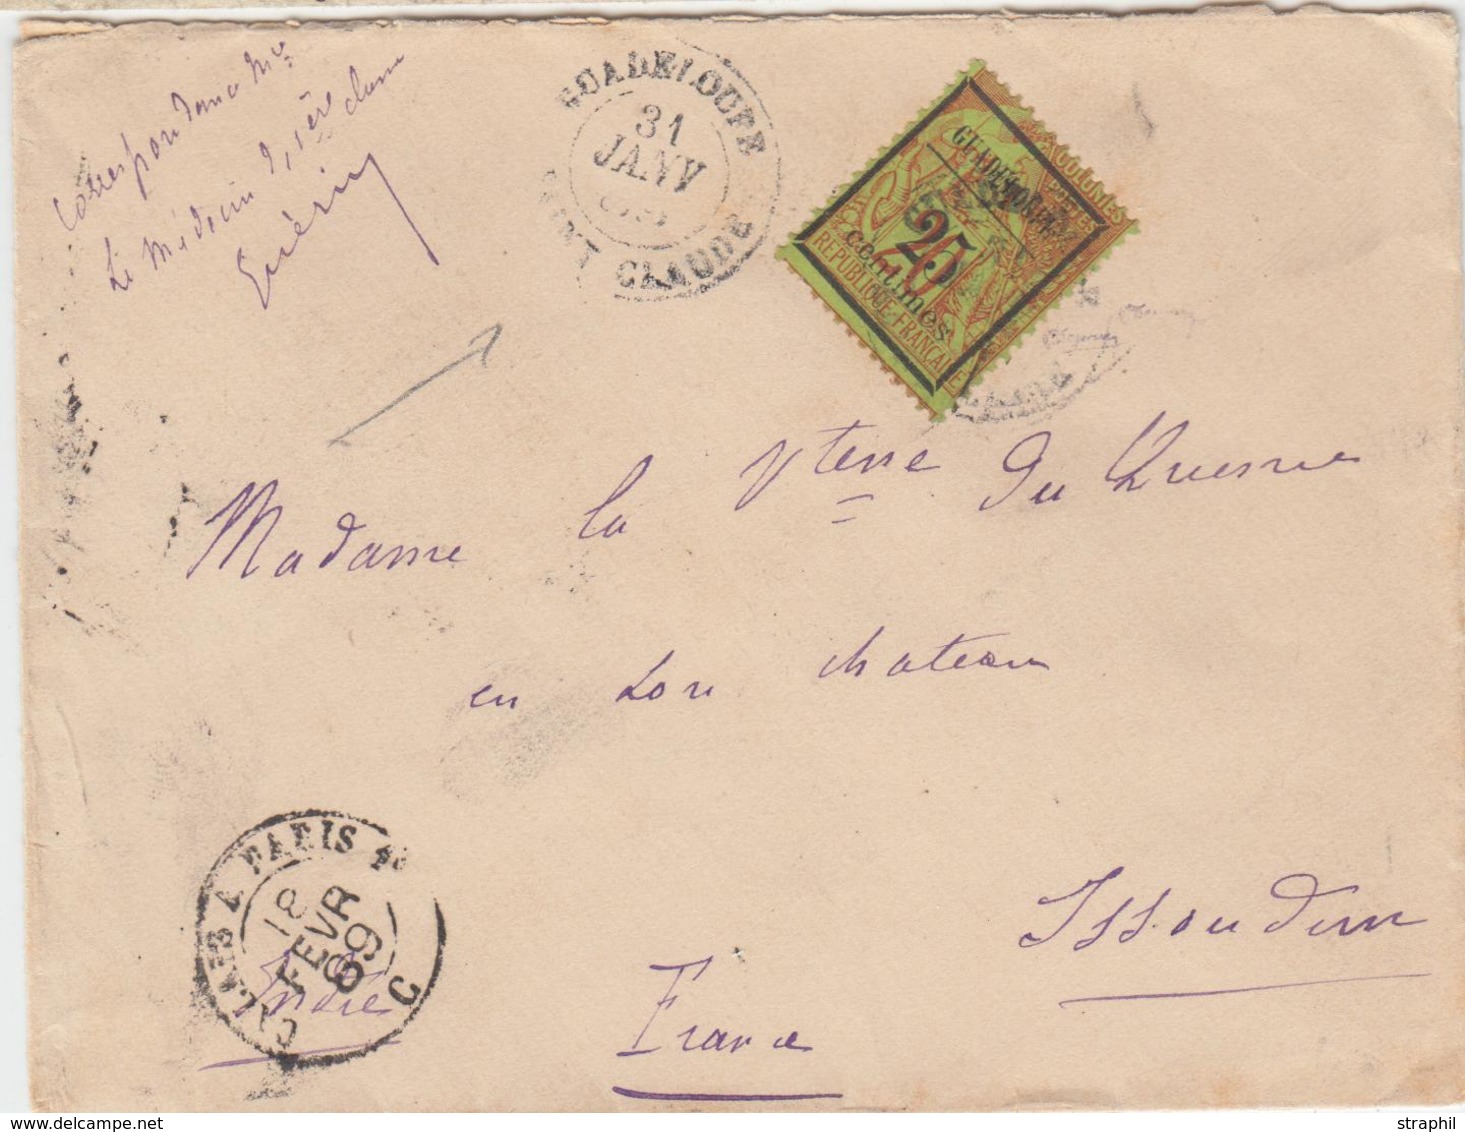 Correspondance Mre
Le Médecin de 1ère classe
Guérin
GUADELOUPE
31
JANV
SAINT CLAUDE
COLONIES
POSTES
GUADELOUPE
25
20
centimes
REPUBLIQUE FRANÇAISE
Madame la Vtesse Du Quesne
en son chateau
Issoudun
Indre
France
CALAIS A PARIS 1º
18
FEVR
89
C
straphil